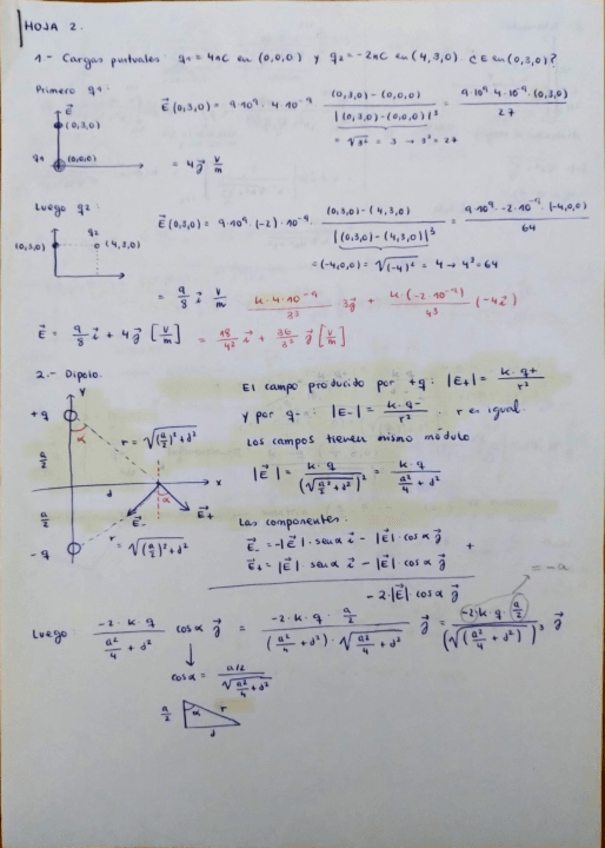 HOJA 2.
1.- Cargas puntuales: q1 = 4nC en (0,0,0) y q2 = -2nC en (4,3,0). ¿E en (0,3,0)?
Primero q1:
E⃗
(0,3,0)
q1 (0,0,0)
E⃗(0,3,0) = 9·10⁹ · 4·10⁻⁹ · ((0,3,0)-(0,0,0)) / |(0,3,0)-(0,0,0)|³ = (9·10⁹ · 4·10⁻⁹ · (0,3,0)) / 27
= √3² = 3 → 3³ = 27
= 4 j⃗ V/m
Luego q2:
q2
(0,3,0) (4,3,0)
E⃗(0,3,0) = 9·10⁹ · (-2)·10⁻⁹ · ((0,3,0)-(4,3,0)) / |(0,3,0)-(4,3,0)|³ = (9·10⁹ · -2·10⁻⁹ · (-4,0,0)) / 64
= (-4,0,0) = √(-4)² = 4 → 4³ = 64
= 9/8 i⃗ V/m (k·4·10⁻⁹)/3³ 3j⃗ + (k·(-2·10⁻⁹))/4³ (-4i⃗)
E⃗ = 9/8 i⃗ + 4 j⃗ [V/m] = 18/4² i⃗ + 36/3² j⃗ [V/m]
2.- Dipolo.
y
+q
α
a/2
r = √((a/2)²+d²)
d
x
α
a/2
E⃗- E⃗+
r = √((a/2)²+d²)
-q
El campo producido por +q: |E+| = (k·q+)/r²
y por q-: |E-| = (k·q-)/r². r es igual.
Los campos tienen mismo módulo
|E⃗| = (k·q)/(√(a²/2+d²))² = (k·q)/(a²/4+d²)
Las componentes:
E⃗- = -|E⃗|·senα i⃗ - |E⃗| cosα j⃗
+
E⃗+ = |E⃗|·senα i⃗ - |E⃗| cosα j⃗
-2·|E⃗| cosα j⃗
= -a
Luego: (-2·k·q)/(a²/4+d²) cosα j⃗ = (-2·k·q·a/2)/((a²/4+d²)·√(a²/4+d²)) j⃗ = (-2·k·q·a/2)/(√(a²/4+d²))³ j⃗
↓
cosα = (a/2)/√(a²/4+d²)
a/2 α r
d